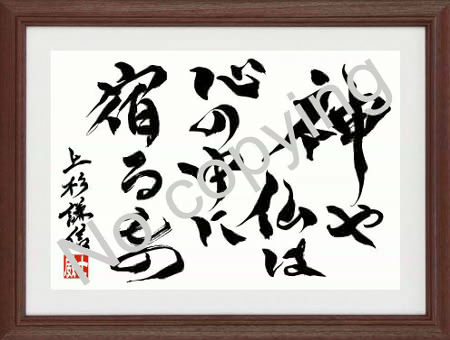 神や
仙は
心の中に
宿るもの
上杉謙信
No copying